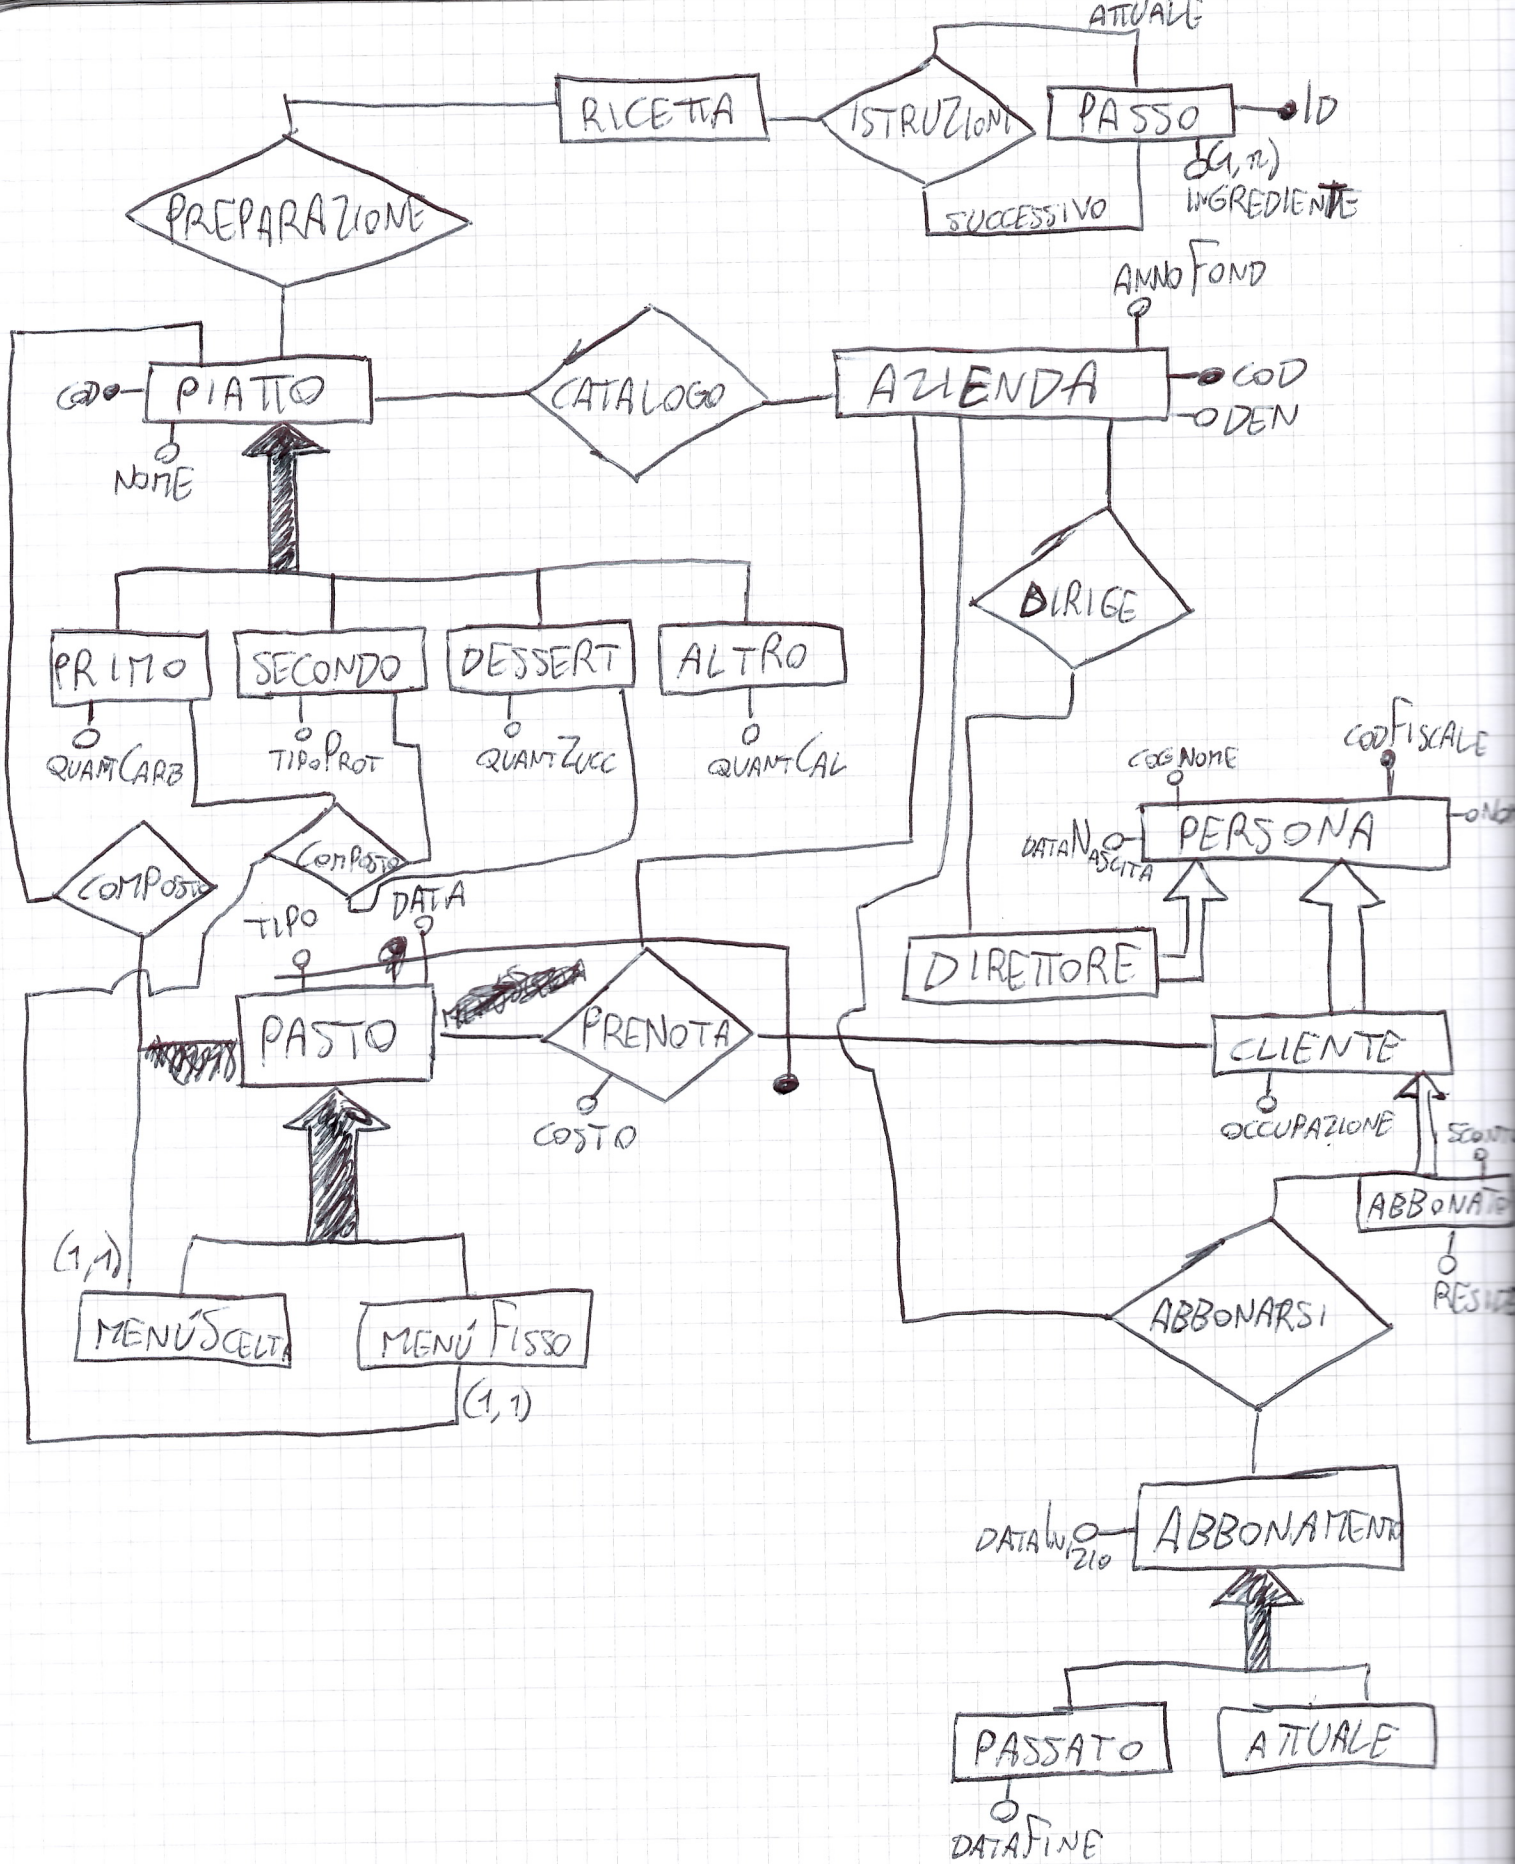 ATTUALE
RICETTA
ISTRUZIONI
PASSO
ID
(1,n)
INGREDIENTE
SUCCESSIVO
PREPARAZIONE
ANNOFOND
COD
PIATTO
NOME
CATALOGO
AZIENDA
COD
DEN
DIRIGE
PRIMO
SECONDO
DESSERT
ALTRO
QUANTCARB
TIPOPROT
QUANTZUCC
QUANTCAL
COGNOME
CODFISCALE
DATANASCITA
PERSONA
COMPOSTO
COMPOSTO
TIPO
DATA
DIRETTORE
PASTO
PRENOTA
CLIENTE
COSTO
OCCUPAZIONE
SCONTO
ABBONATO
(1,1)
MENÚSCELTA
MENÚFISSO
(1,1)
ABBONARSI
DATAINIZIO
ABBONAMENTO
PASSATO
ATTUALE
DATAFINE